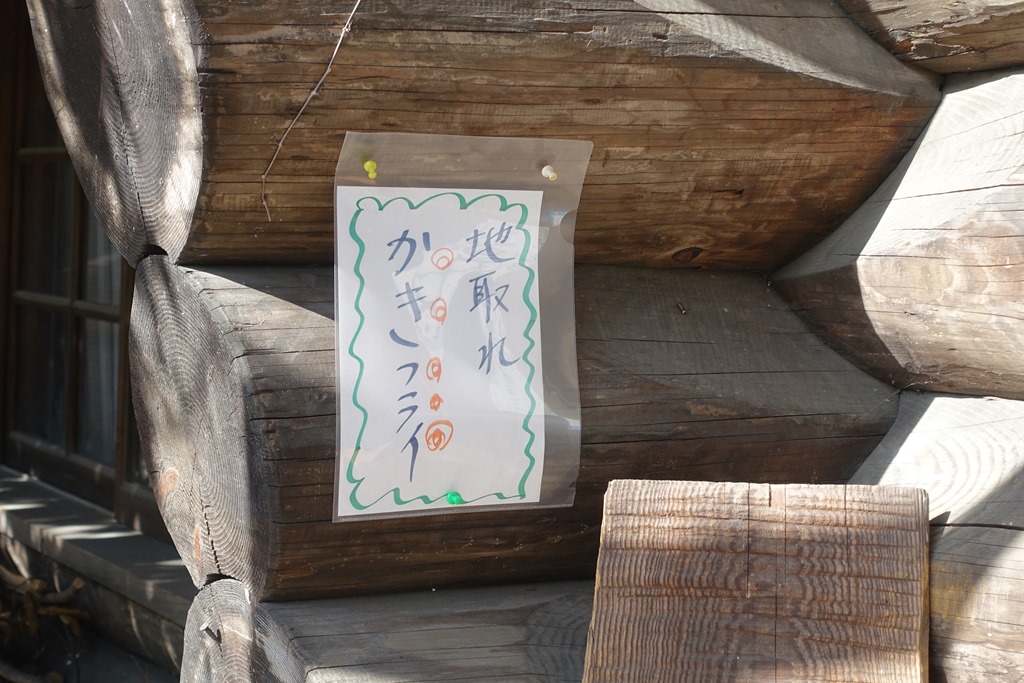 地取れ
かきっフライ